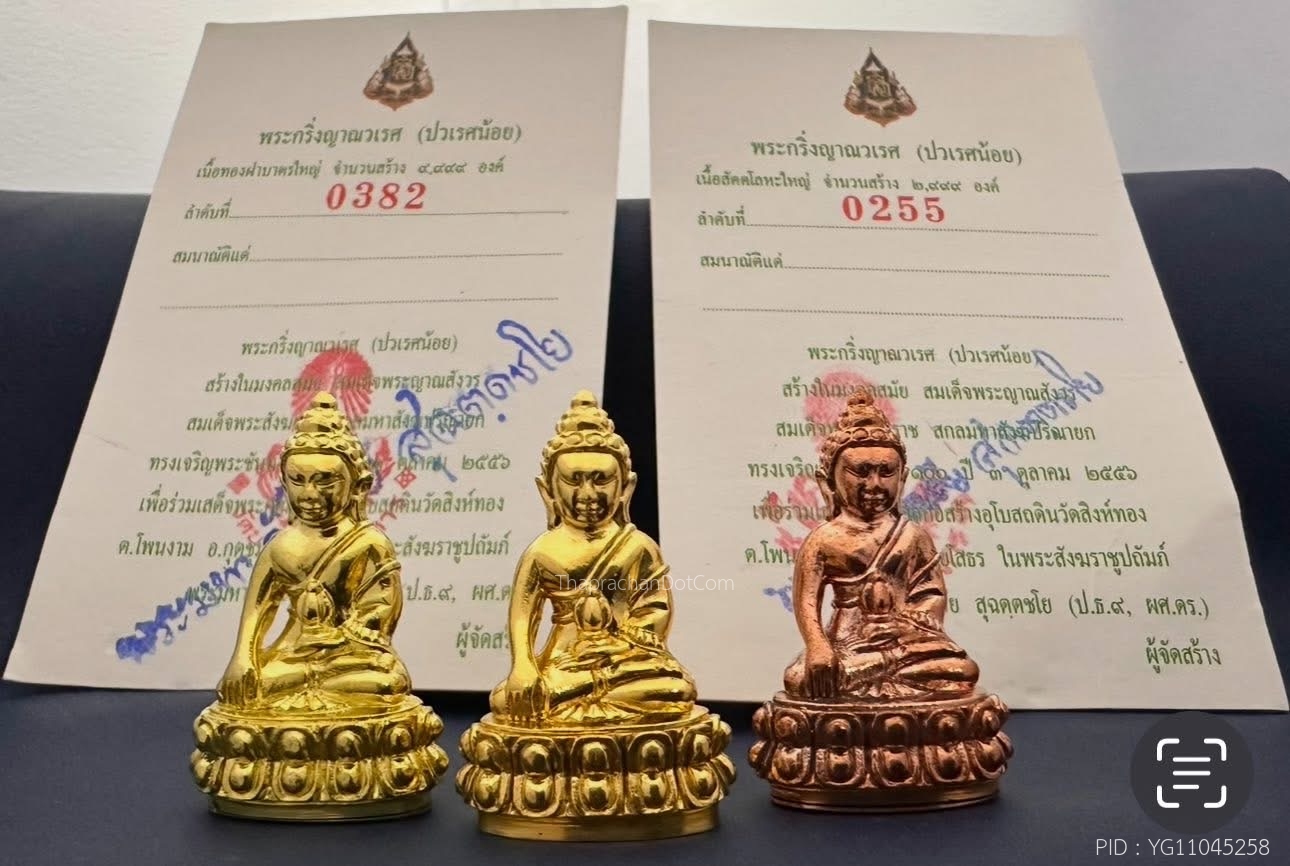 พระกริ่งญาณวเรศ (ปวเรศน้อย)
เนื้อทองฝาบาตรใหญ่ จำนวนสร้าง ๔,๙๙๙ องค์
ลำดับที่ 0382
สมนาณัติแด่
พระกริ่งญาณวเรศ (ปวเรศน้อย)
สร้างในมงคลสมัย สมเด็จพระญาณสังวร
สมเด็จพระสังฆ สกลมหาสังฆปริณายก
ทรงเจริญพระชัน ตุลาคม ๒๕๕๖
เพื่อร่วมเสด็จพระ อุโบสถดินวัดสิงห์ทอง
ต.โพนงาม อ.กุดชุม พระสังฆราชูปถัมภ์
พระมหา (ป.ธ.๙, ผศ.ด
ผู้จัดสร้
พระกริ่งญาณวเรศ (ปวเรศน้อย)
เนื้อสัตตโลหะใหญ่ จำนวนสร้าง ๒,๙๙๙ องค์
ลำดับที่ 0255
สมนาณัติแด่
พระกริ่งญาณวเรศ (ปวเรศน้อย)
สร้างในมงคลสมัย สมเด็จพระญาณสังวร
สมเด็จพ ราช สกลมหาสังฆปริณายก
ทรงเจริญ ๑๐๐ ปี ๓ ตุลาคม ๒๕๕๖
เพื่อร่วม ก่อสร้างอุโบสถดินวัดสิงห์ทอง
ต.โพน ยโสธร ในพระสังฆราชูปถัมภ์
ย สุฉตฺตชโย (ป.ธ.๙, ผศ.ดร.)
ผู้จัดสร้าง
ThaprachanDotCom
PID : YG11045258